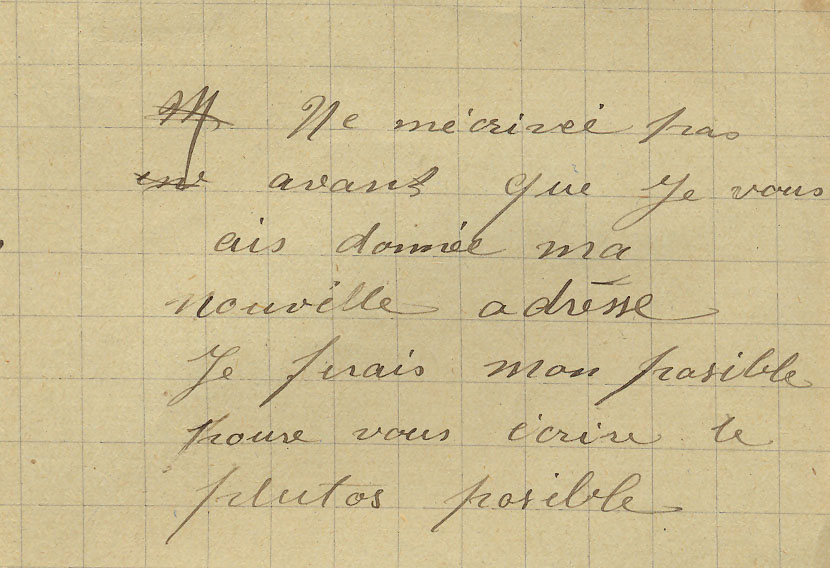 Ne mécriveé pas
avant que Je vous
ais donnée ma
nouvelle adrèsse
Je ferais mon posible
poure vous écrire le
plutos posible